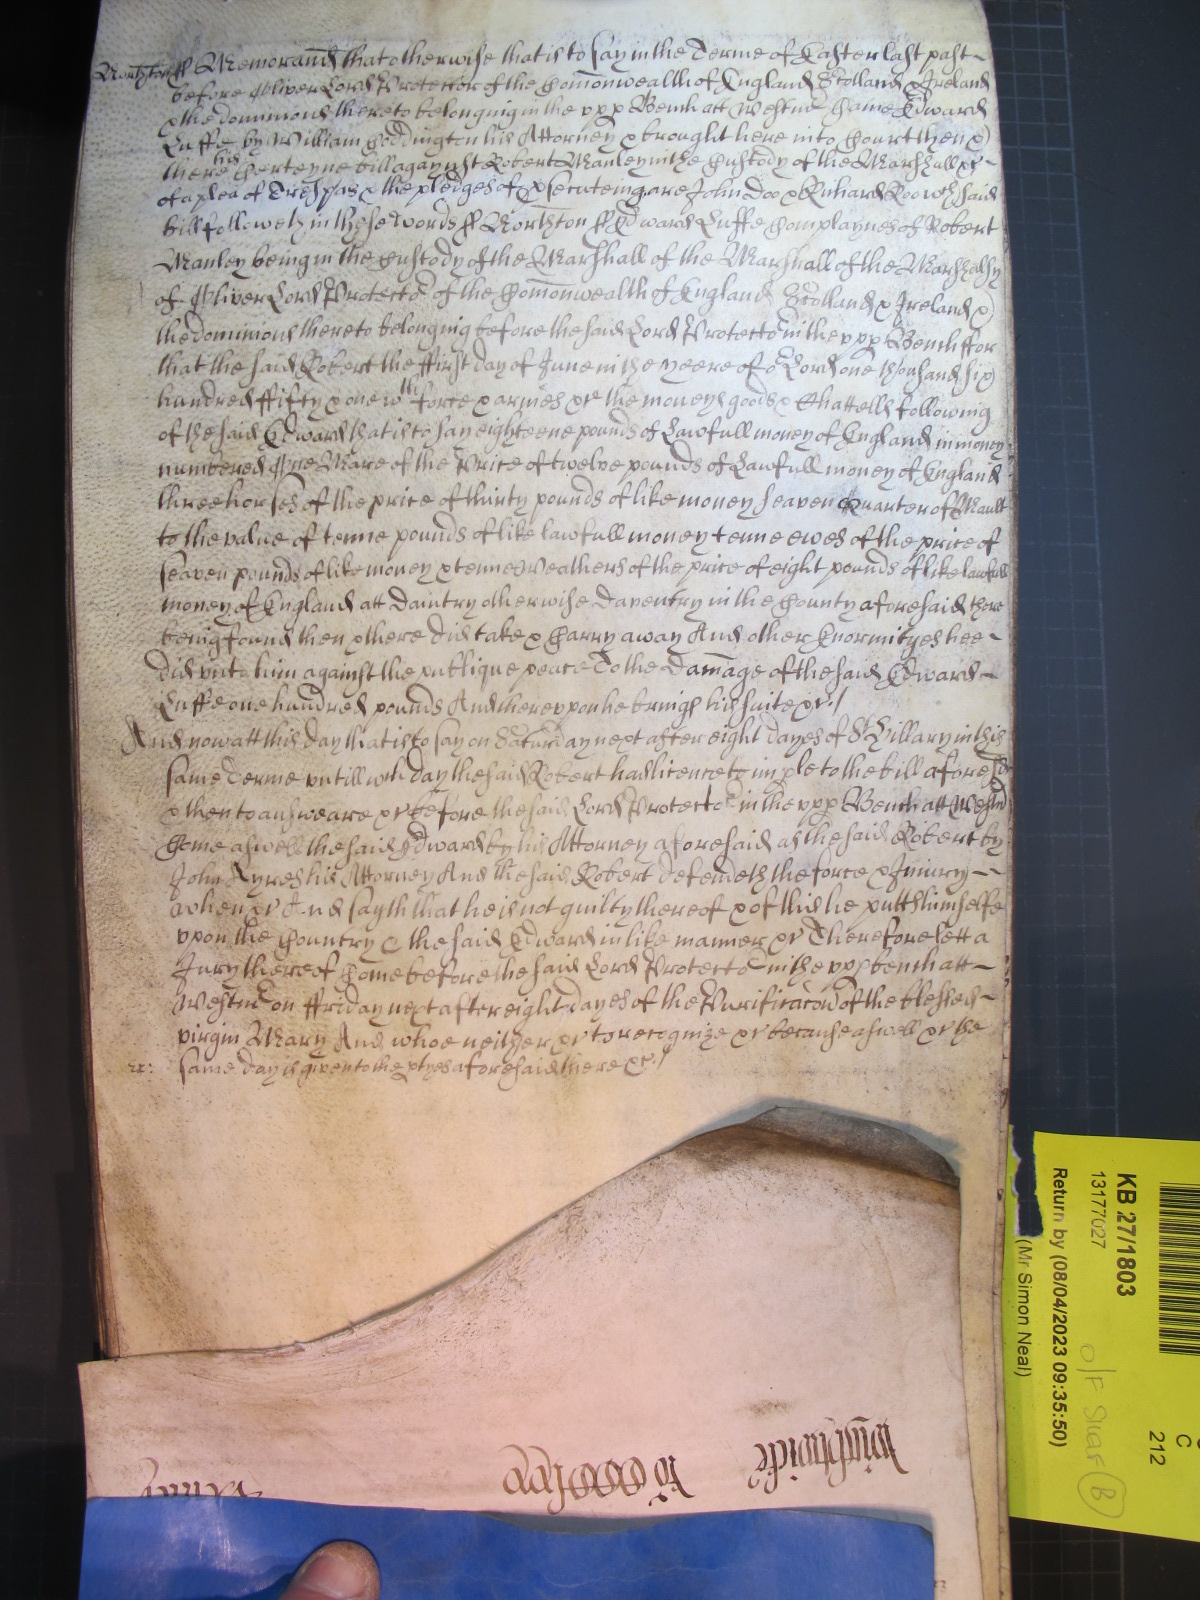 Northton ss Memorand that otherwise that is to say in the Terme of Easter last past
before Oliver Lord Protector of the Comonwealth of England Scotland & Ireland
& the dominions thereto belonging in the upp Bench att Westm Came Edward
Cuffe by William Goddington his Attorney & brought here into Court then &
there his Certeyne bill agaynst Robert Manley in the Custody of the Marshall &c
of a plea of Trespas & the pledges of &secuteing are John Doo & Richard Roo wch said
bill followeth in these words ss Northton ss Edward Cuffe Complaynes of Robert
Manley being in the Custody of the Marshall of the Marshall of the Marshalsy
of Oliver Lord Protector of the Comonwealth of England Scotland & Ireland &
the dominions thereto belonging before the said Lord Protector in the upp Bench ffor
that the said Robert the ffirst day of June in the yeere of o Lord one thousand six
hundred ffifty & one wth force & armes &c the moneys goods & Chattells following
of the said Edward that is to say eighteene pounds of Lawfull money of England in money
numbered One Mare of the Price of twelve pounds of Lawfull money of England
three horses of the price of thirty pounds of like money seaven Quarter of Mault
to the value of tenne pounds of like lawfull money tenne ewes of the price of
seaven pounds of like money & tenne Weathers of the price of eight pounds of like lawfull
money of England att Daintry otherwise Daventry in the County aforesaid there
being found then & there did take & Carry away And other Enormityes hee
did unto him against the publique peace To the Damage of the said Edward
Cuffe one hundred pounds And thereupon he brings his suite &c./
And now att this day that is to say on Saturday next after eight dayes of St Hillary in this
same Terme untill wch day the said Robert had licence to imple to the bill aforesd
& then to answeare &c before the said Lord Protector in the upp Bench att Westm
Come aswell the said Edward by his Attorney aforesaid as the said Robert by
John Ayres his Attorney And the said Robert defendeth the force & Iniury
when &c And sayth that he is not guilty thereof & of this he putts himselfe
upon the Country & the said Edward in like manner &c Therefore lett a
Jury thereof Come before the said Lord Protector in the upp bench att
Westm on ffriday next after eight dayes of the Purificacon of the blessed
virgin Mary And whoe neither &c to recognize &c because aswell &c the
same day is given to the ptyes aforesaid there &c./
KB 27/1803
13177027
Return by (08/04/2023 09:35:50)
(Mr Simon Neal)
O/F Shelf B
C
212